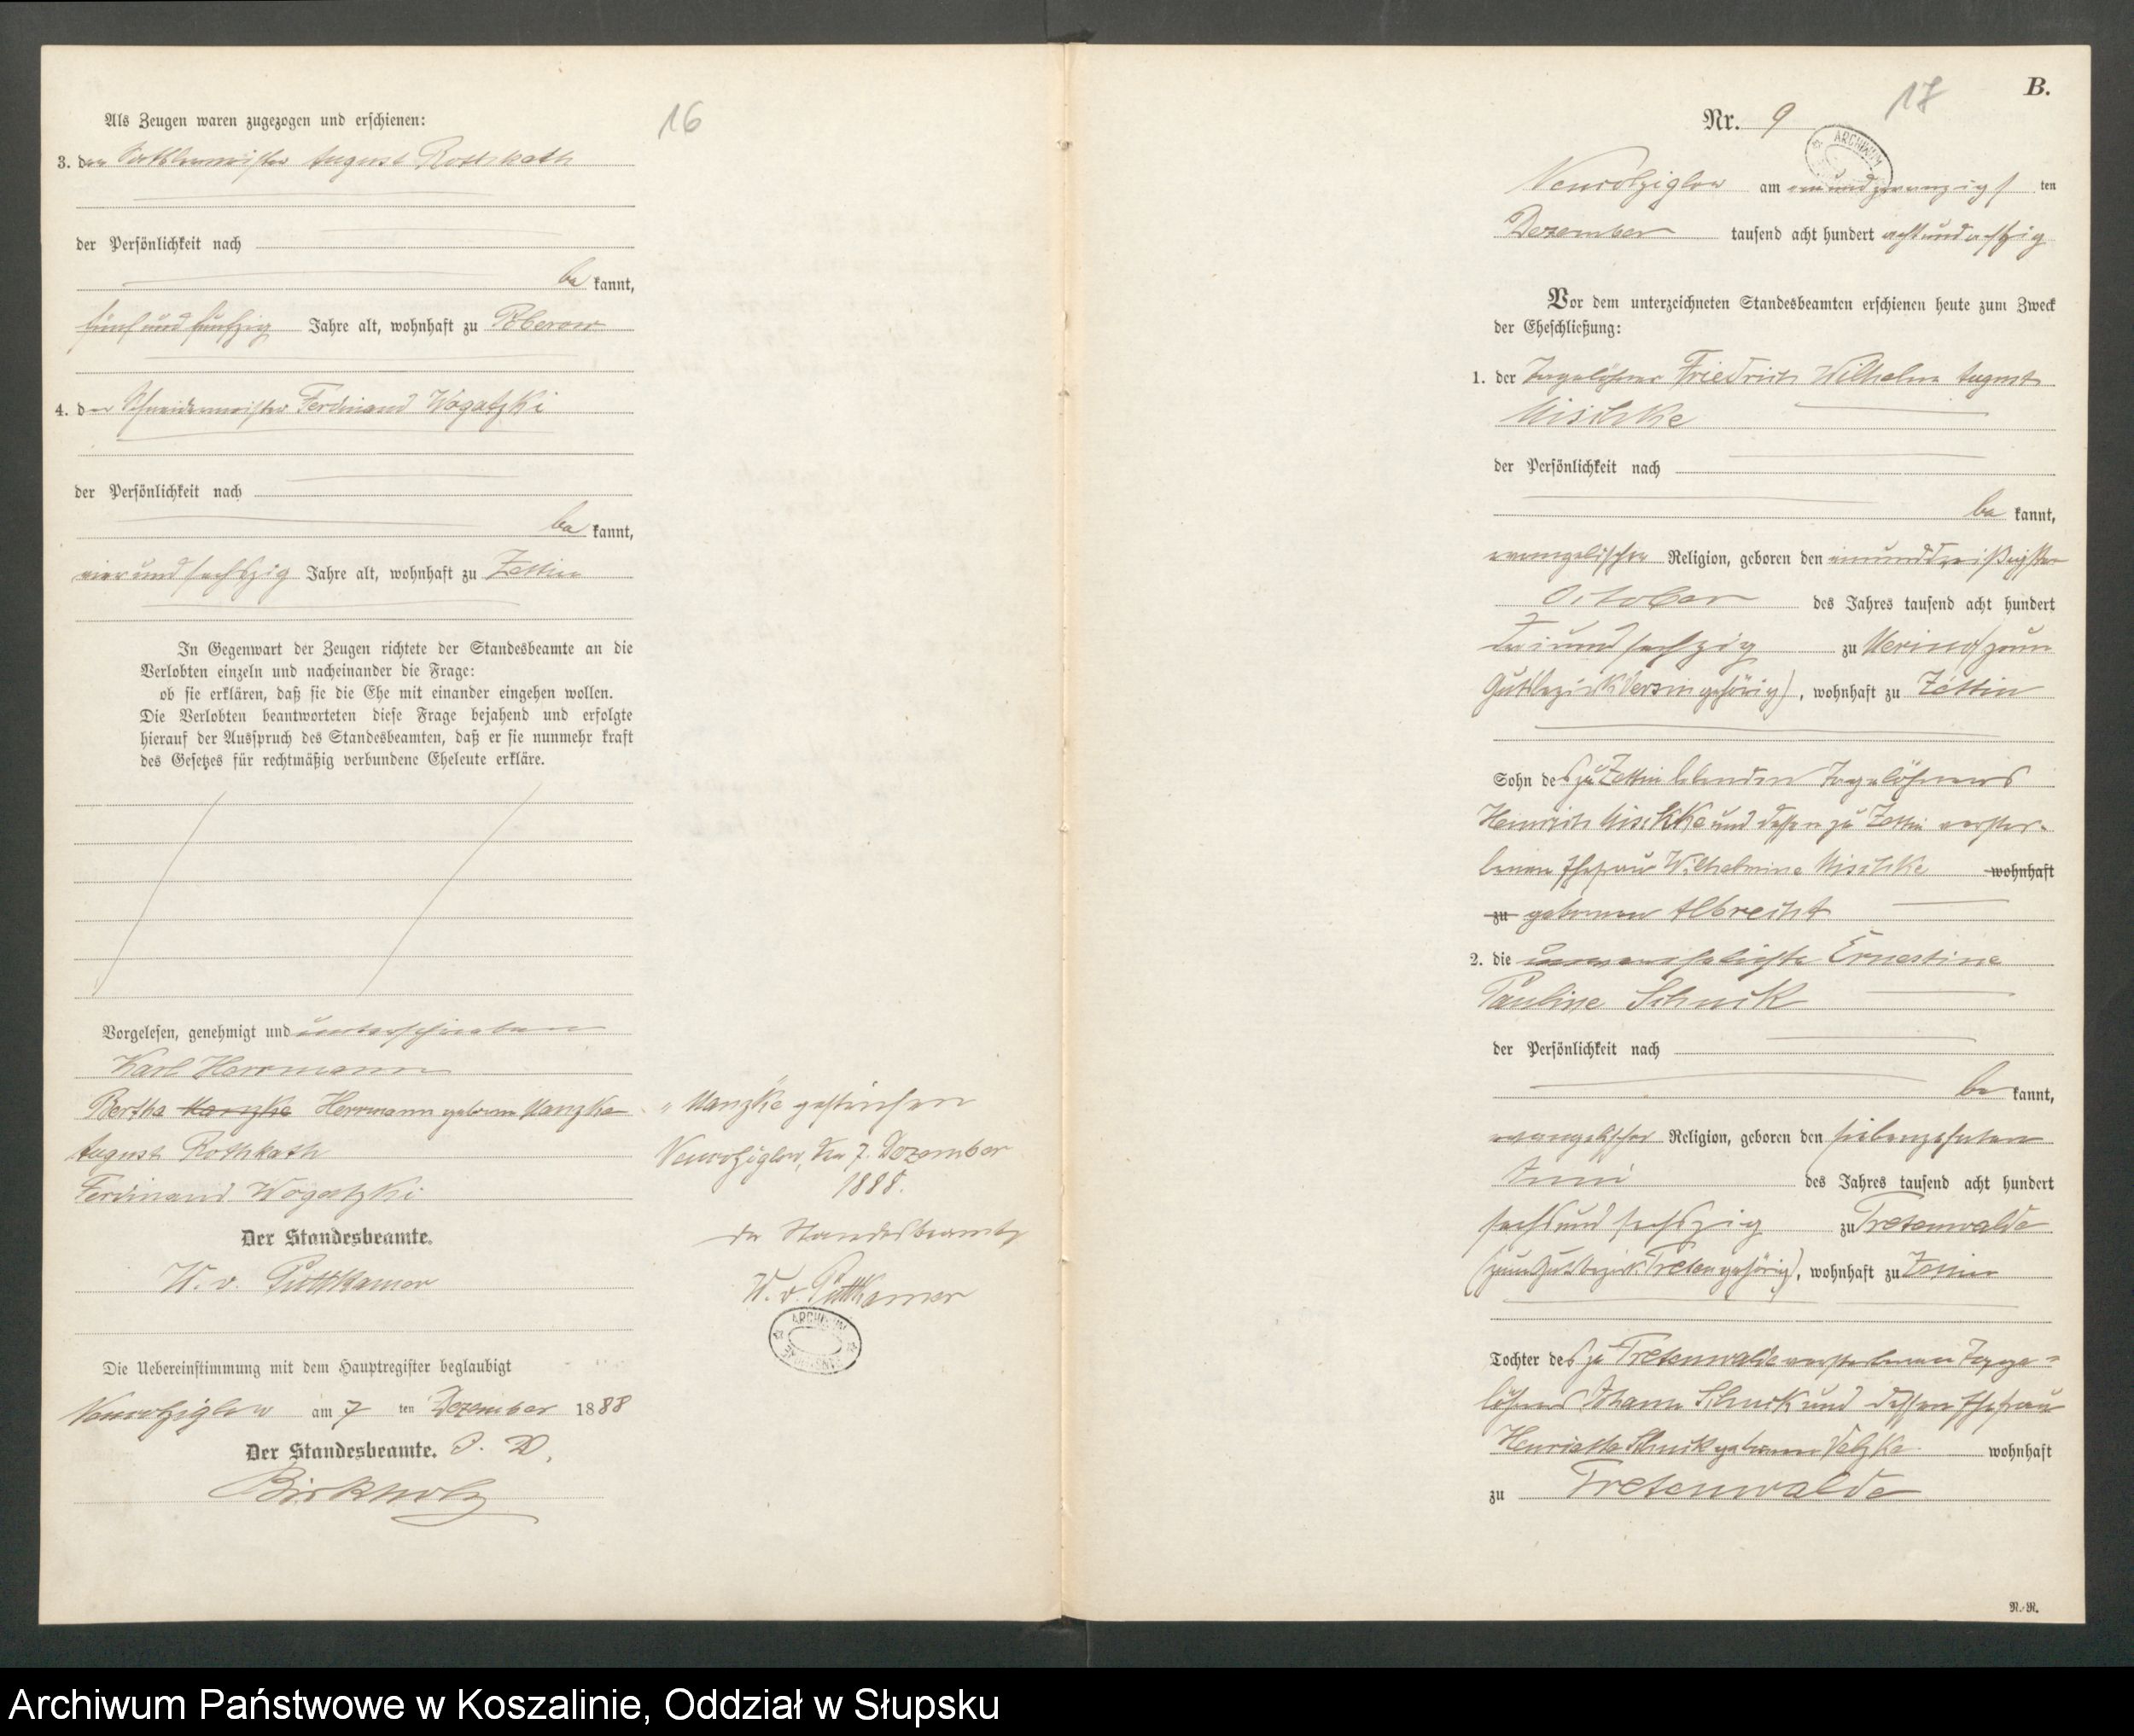 Als Zeugen waren zugezogen und erschienen:
3. der Sattlermeister August Rothkath
der Persönlichkeit nach
be kannt,
fünf und fünfzig Jahre alt, wohnhaft zu Poberow
4. der Schneidermeister Ferdinand Wogatzki
der Persönlichkeit nach
be kannt,
vier und sechszig Jahre alt, wohnhaft zu Zettin
In Gegenwart der Zeugen richtete der Standesbeamte an die
Verlobten einzeln und nacheinander die Frage:
ob sie erklären, daß sie die Ehe mit einander eingehen wollen.
Die Verlobten beantworteten diese Frage bejahend und erfolgte
hierauf der Ausspruch des Standesbeamten, daß er sie nunmehr kraft
des Gesetzes für rechtmäßig verbundene Eheleute erkläre.
Vorgelesen, genehmigt und unterschrieben
Karl Herrmann
Bertha Manzke Herrmann geborne Manzke
August Rothkath
Ferdinand Wogatzki
Der Standesbeamte.
W. v. Puttkamer
Die Uebereinstimmung mit dem Hauptregister beglaubigt
am 7 ten Dezember 1888
Der Standesbeamte. I. V.
Birkholz
16
" Manzke gestrichen
den 7. Dezember
1888.
der Standesbeamte
W. v. Puttkamer
ARCHIWUM
B.
17
Nr. 9
ARCHIWUM
am einundzwanzigs ten
Dezember tausend acht hundert achtundachtzig
Vor dem unterzeichneten Standesbeamten erschienen heute zum Zweck
der Eheschließung:
1. der Tagelöhner Friedrich Wilhelm August
Mischke
der Persönlichkeit nach
be kannt,
evangelischer Religion, geboren den einunddreißigsten
October des Jahres tausend acht hundert
dreiundsechzig zu Merino (zum
Gutsbezirk Versin gehörig), wohnhaft zu Zettin
Sohn des zu Zettin lebenden Tagelöhners
Heinrich Mischke und dessen zu Zettin verstor-
benen Ehefrau Wilhelmine Mischke wohnhaft
zu gebornen Albrecht
2. die unverehelichte Ernestine
Pauline Schuck
der Persönlichkeit nach
be kannt,
evangelischer Religion, geboren den siebenzehnten
Juni des Jahres tausend acht hundert
sechsundsechszig zu Tretenwalde
(zum Gutsbezirk Treten gehörig), wohnhaft zu Zettin
Tochter des zu Tretenwalde verstorbenen Tage-
löhners Johann Schuck und dessen Ehefrau
Henriette Schuck gebornen Vetzke wohnhaft
zu Tretenwalde
N.-R.
Archiwum Państwowe w Koszalinie, Oddział w Słupsku